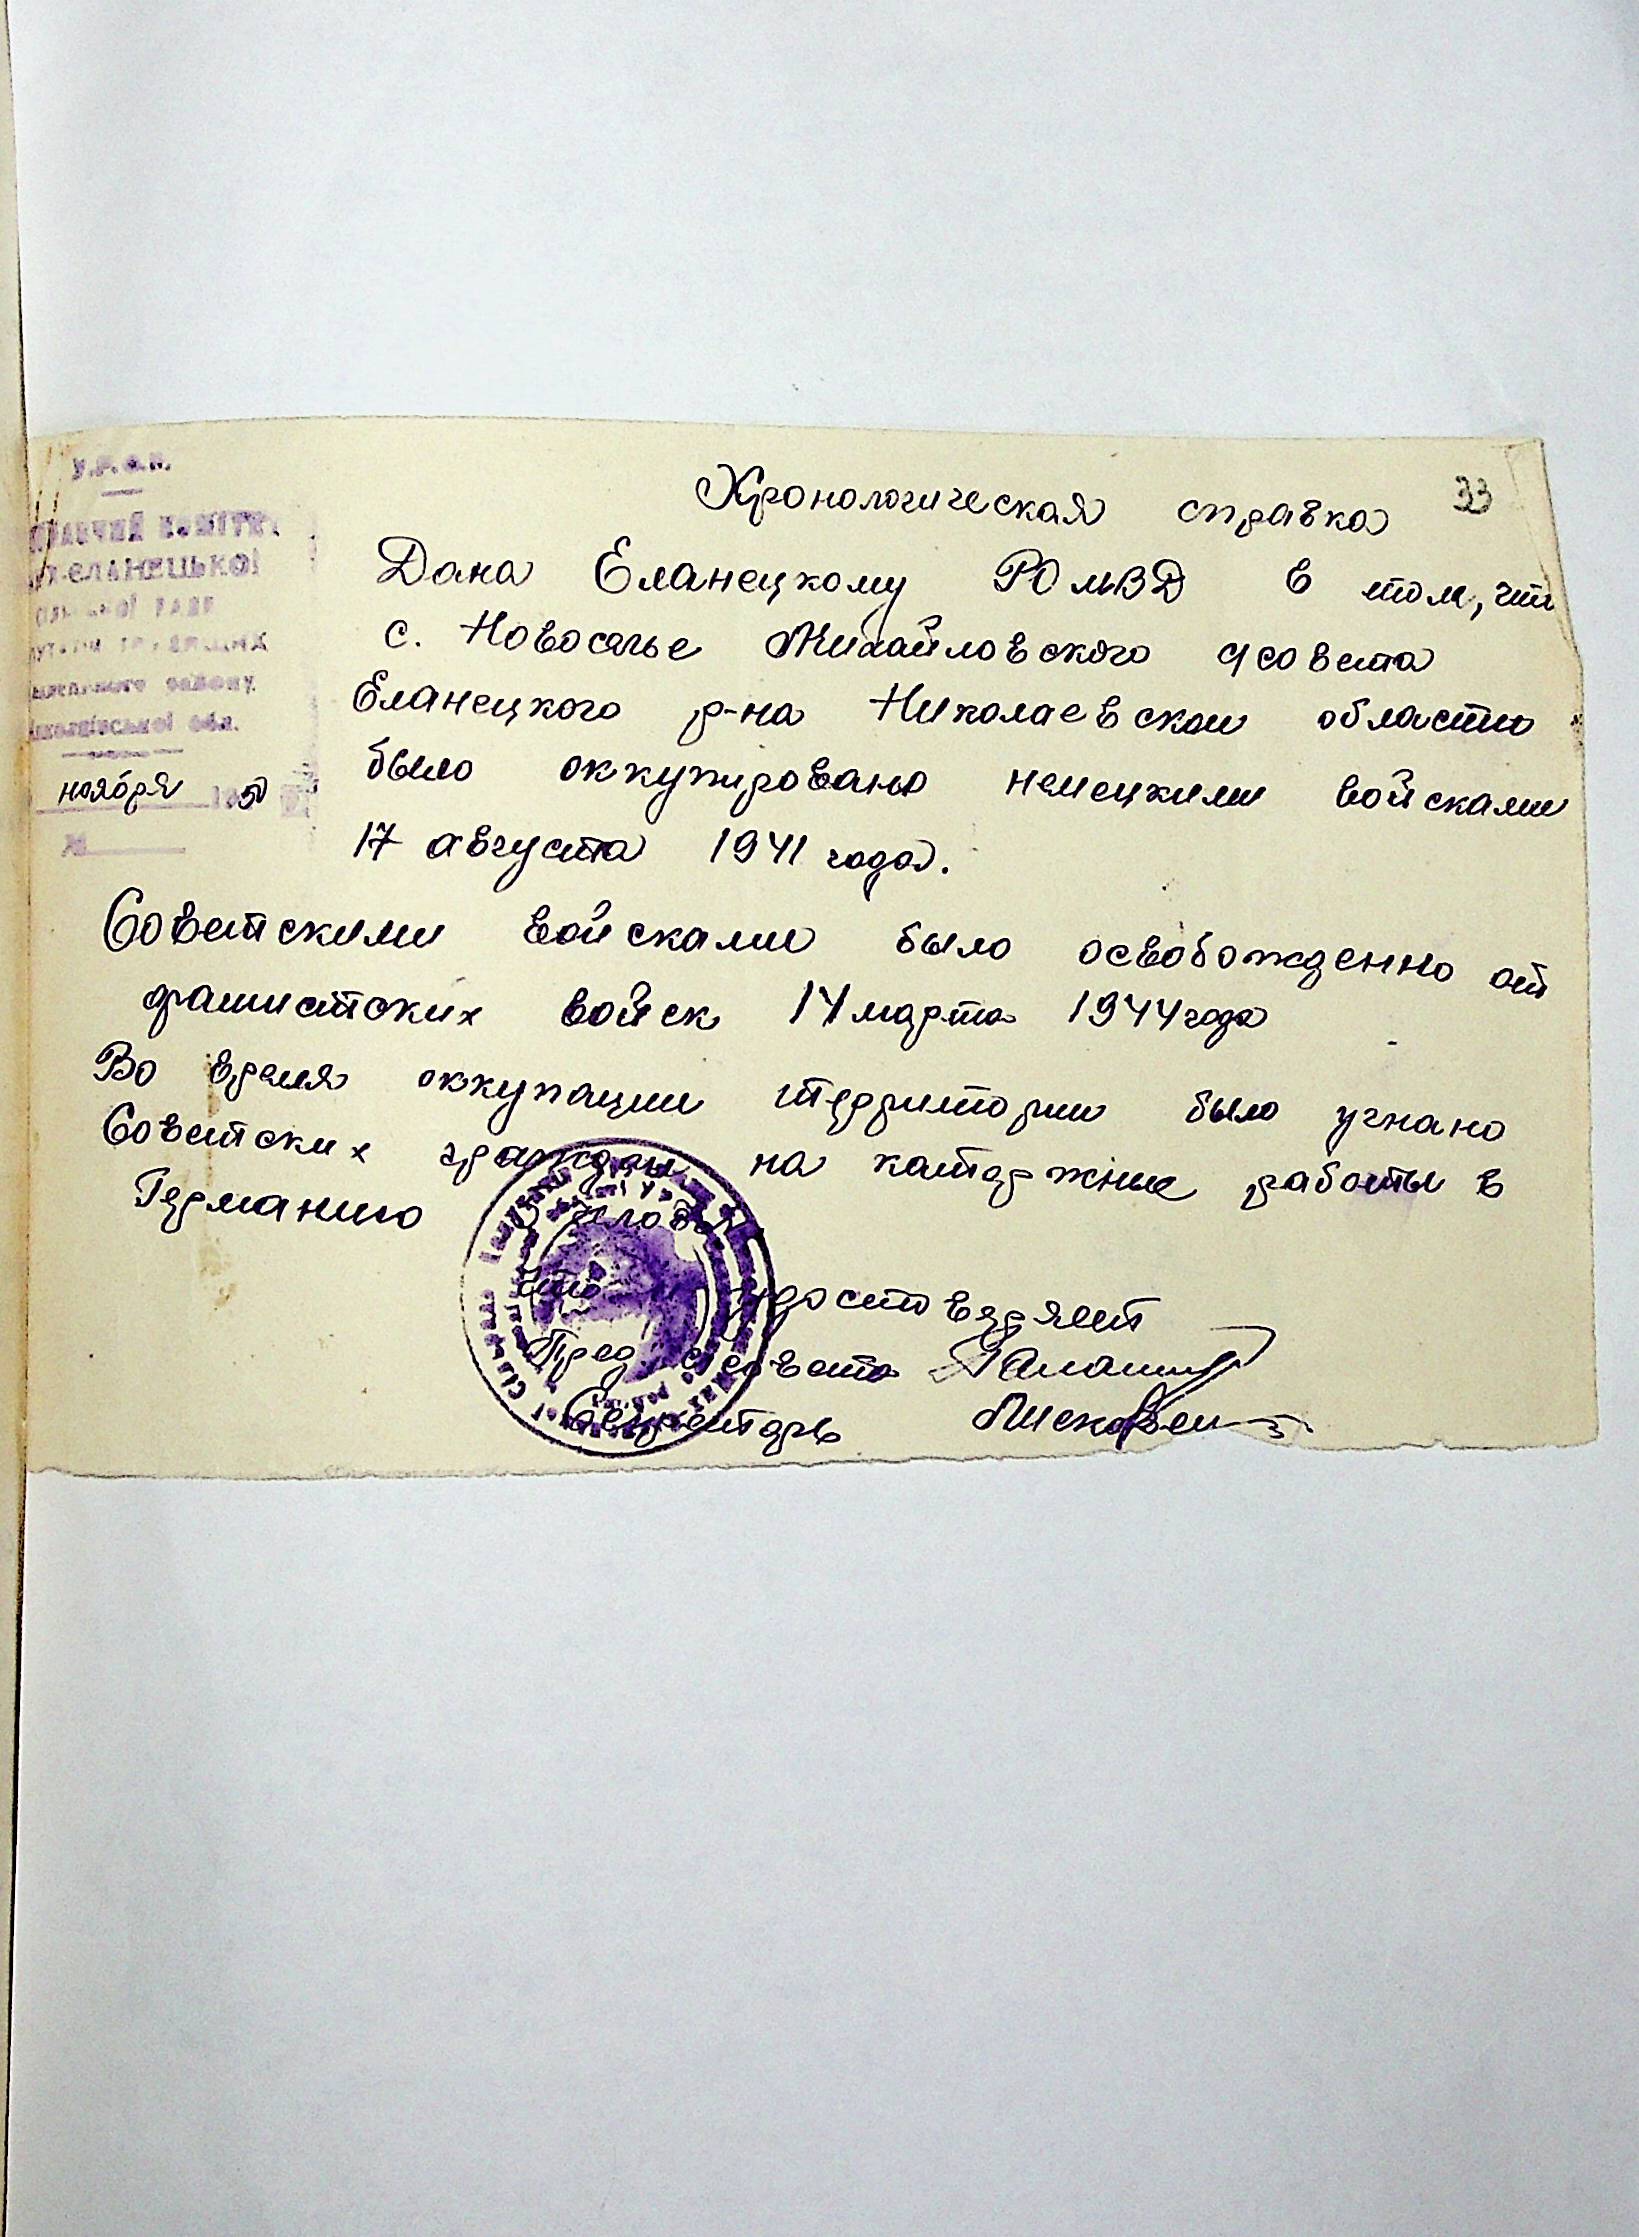 33
Хронологическая справка
У.Р.С.Р.
КОМІТЕТ
ЕЛАНЕЦЬКОЇ
РАДИ
району
Миколаївської обл.
ноября 1950
№
Дана Еланецкому РО МВД в том, что
с. Новоселье Михайловского с/совета
Еланецкого р-на Николаевскои области
было оккупировано немецкими войсками
17 августа 1941 года.
Советскими войсками было освобожденно от
фашистских войск 14 марта 1944 года
Во время оккупации территории было угнано
Советских граждан на каторжные работы в
Германию человек
Что и удостоверяет
Пред. с/совета
Секретарь